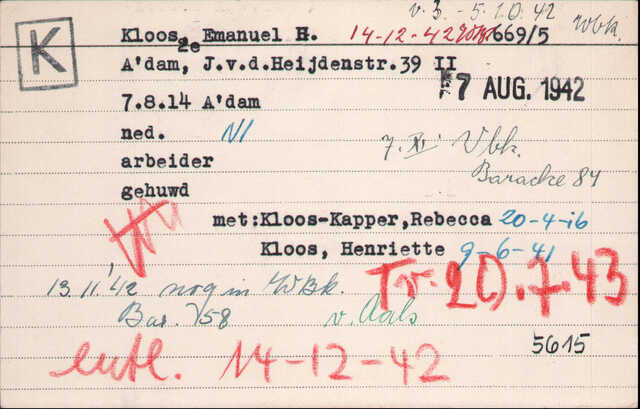 v. 3. - 5.10.42 Wbk.
K
Kloos, Emanuel H. 14-12-42 669/5
A'dam, 2e J.v.d.Heijdenstr.39 II
7 AUG. 1942
7.8.14 A'dam
ned. Nl
7. XI Vbk.
arbeider
Baracke 84
gehuwd
met:Kloos-Kapper,Rebecca 20-4-16
Kloos, Henriette 9-6-41
Tr. 20.7.43
13.11.'42 nog in WBk.
Bar. 58 v. Aals
5615
entl. 14-12-42